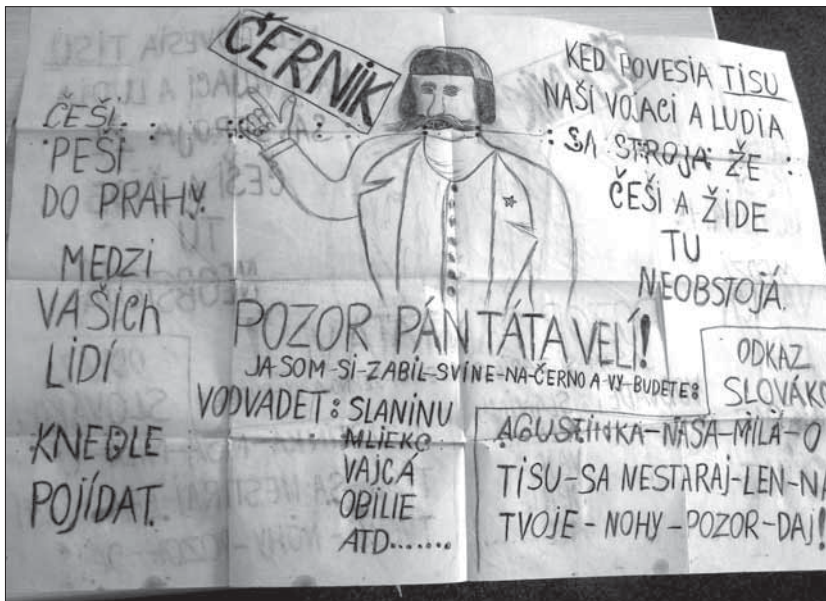 ČERNÍK
ČEŠI
PEŠI
DO PRAHY.
MEDZI
VAŠICH
LIDÍ
KNEDLE
POJÍDAT.
KED POVESIA TISU
NAŠI VOJACI A LUDIA
SA STROJA ŽE
ČEŠI A ŽIDE
TU
NEOBSTOJÁ.
POZOR PÁN TÁTA VELÍ!
JA SOM-SI-ZABIL-SVINE-NA-ČERNO A-VY-BUDETE:
VODVADET: SLANINU
MLIEKO
VAJCÁ
OBILIE
ATD.......
ODKAZ
SLOVÁKO
AGUSTINKA-NAŠA-MILÁ-O
TISU-SA NESTARAJ-LEN-NA
TVOJE-NOHY-POZOR-DAJ!